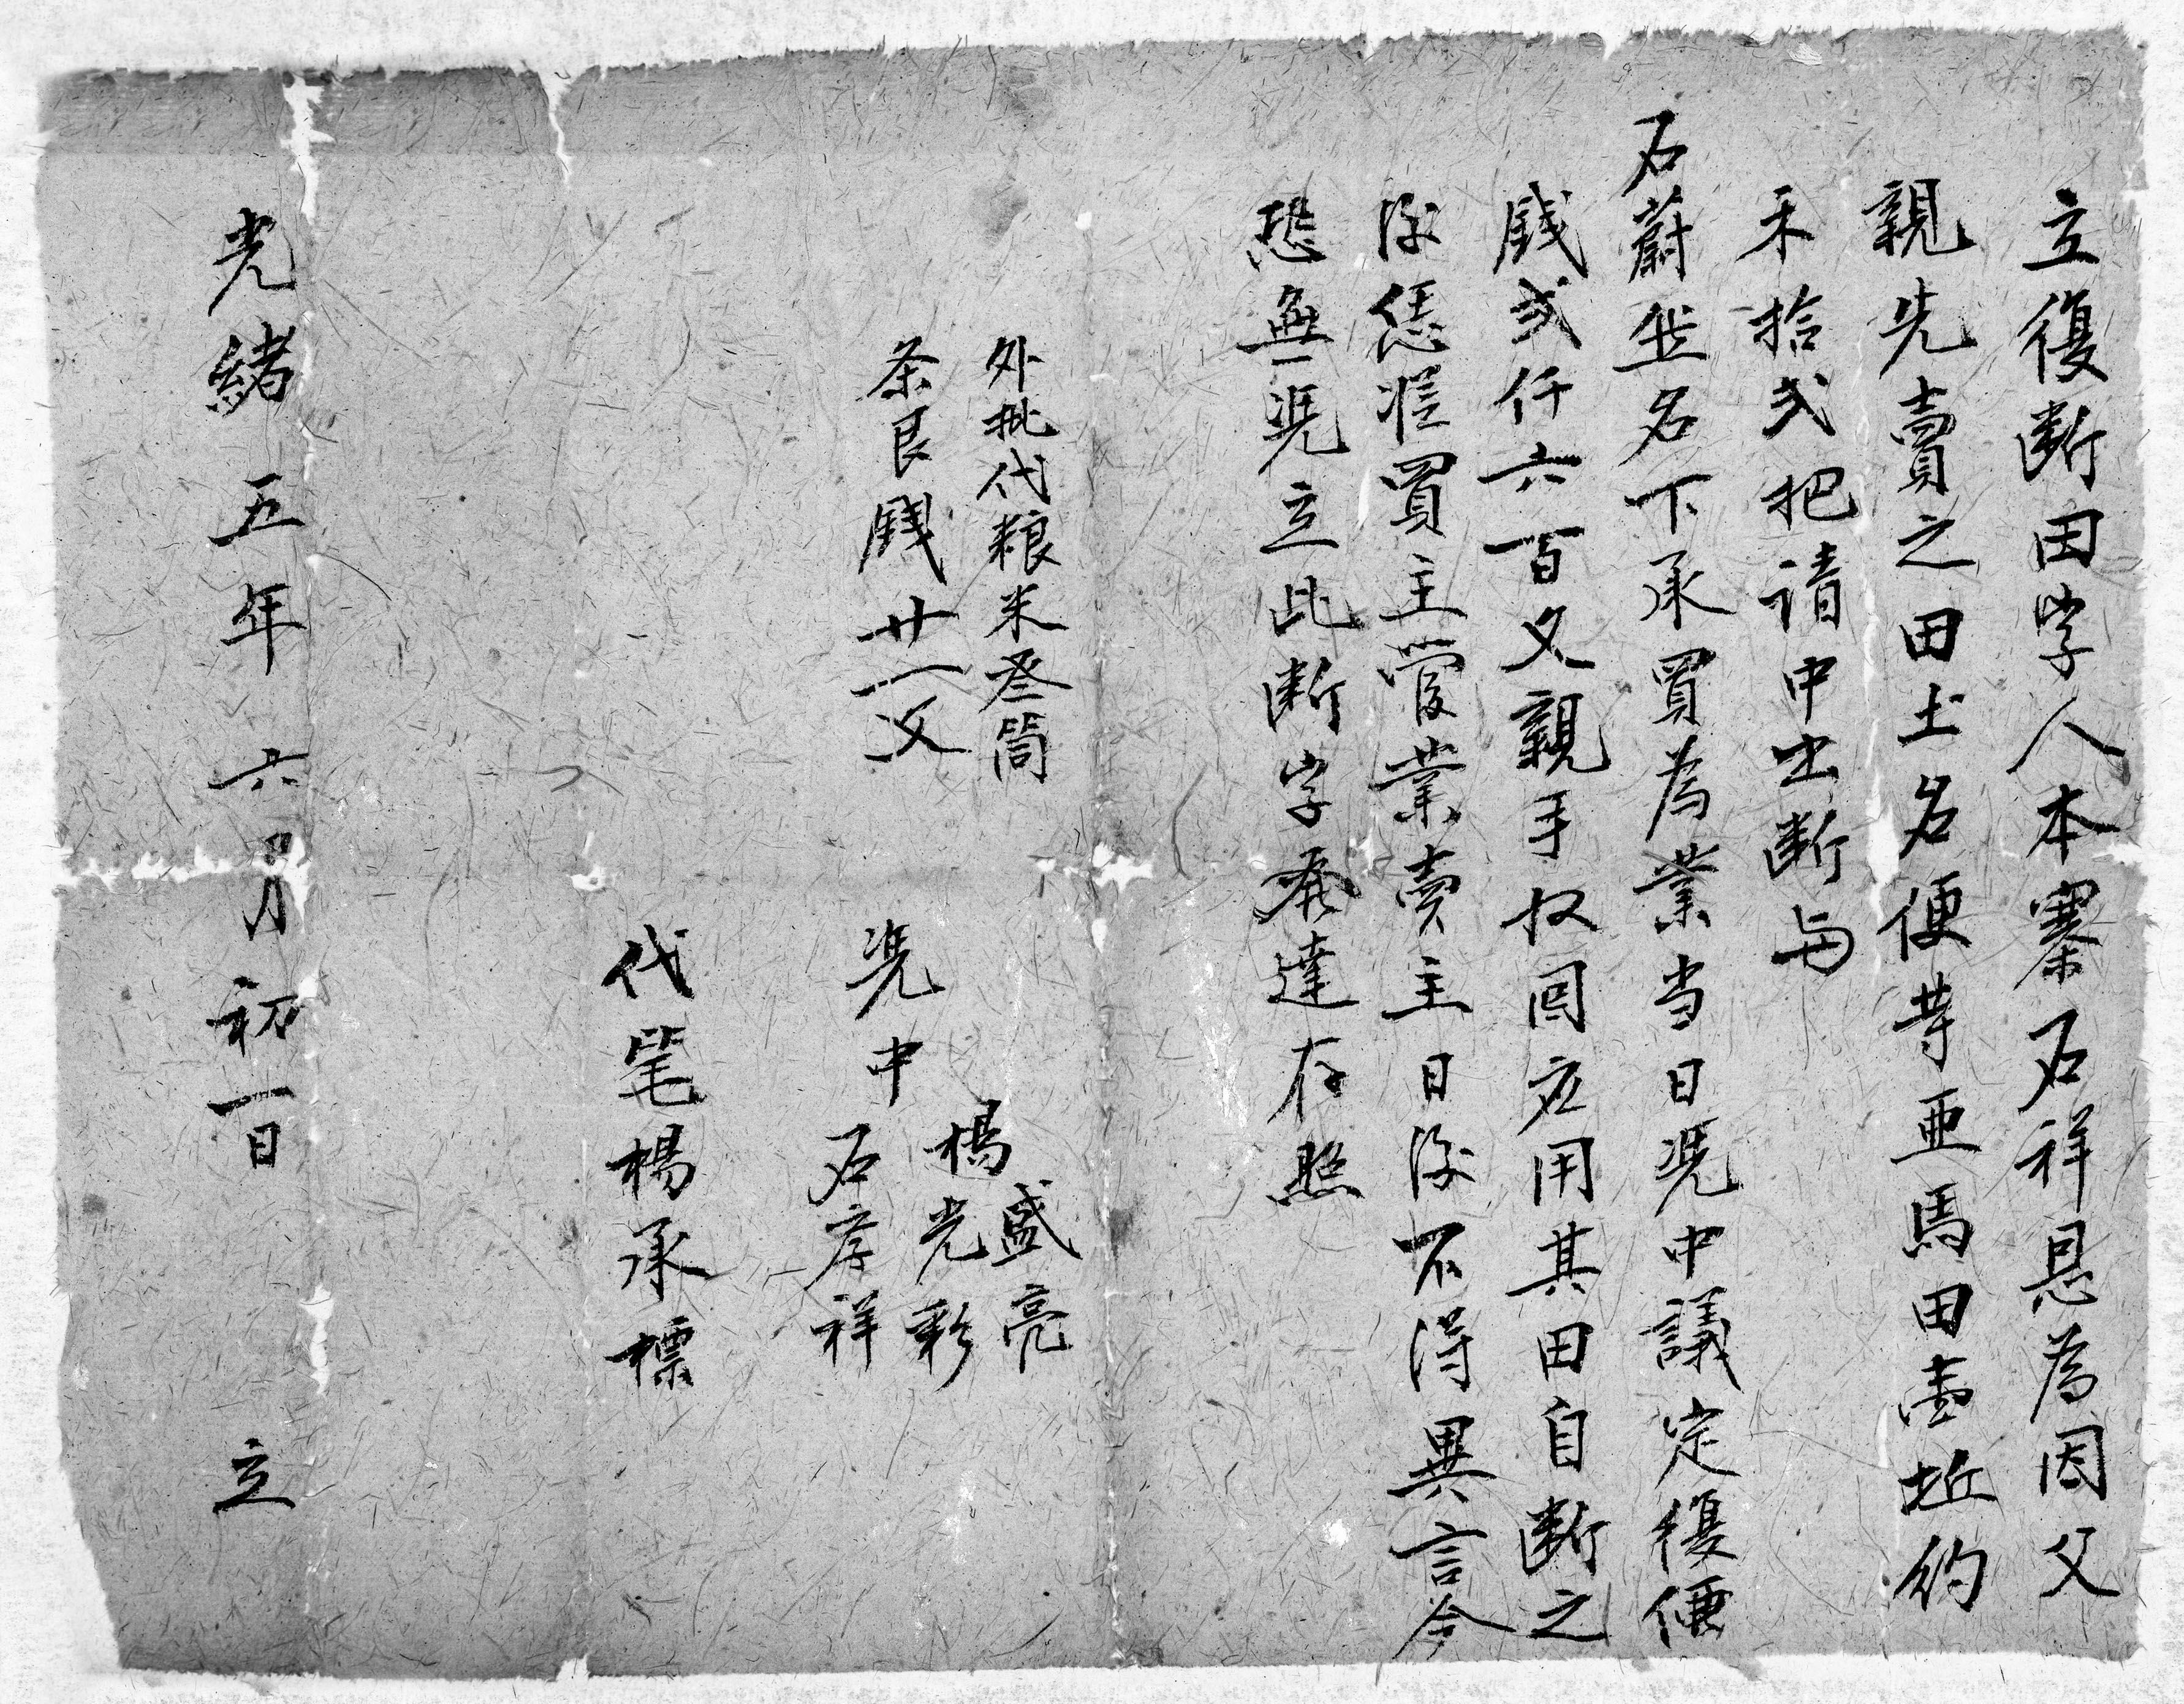 立復断田字人本寨石祥恳為因父
親先賣之田土名便昔亜馬田壹坵約
禾拾弍把請中出断与
石蔚坒名下承買為業当日凴中議定復價
錢弍仟六百文親手収囬应用其田自断之
後恁凴買主管業賣主日後不得異言今
恐無凴立此断字發達存照
外批代粮米叁筒
条艮錢廿一文
楊盛亮
光彩
凴中石孝祥
代笔楊承標
光緒五年六月初一日立